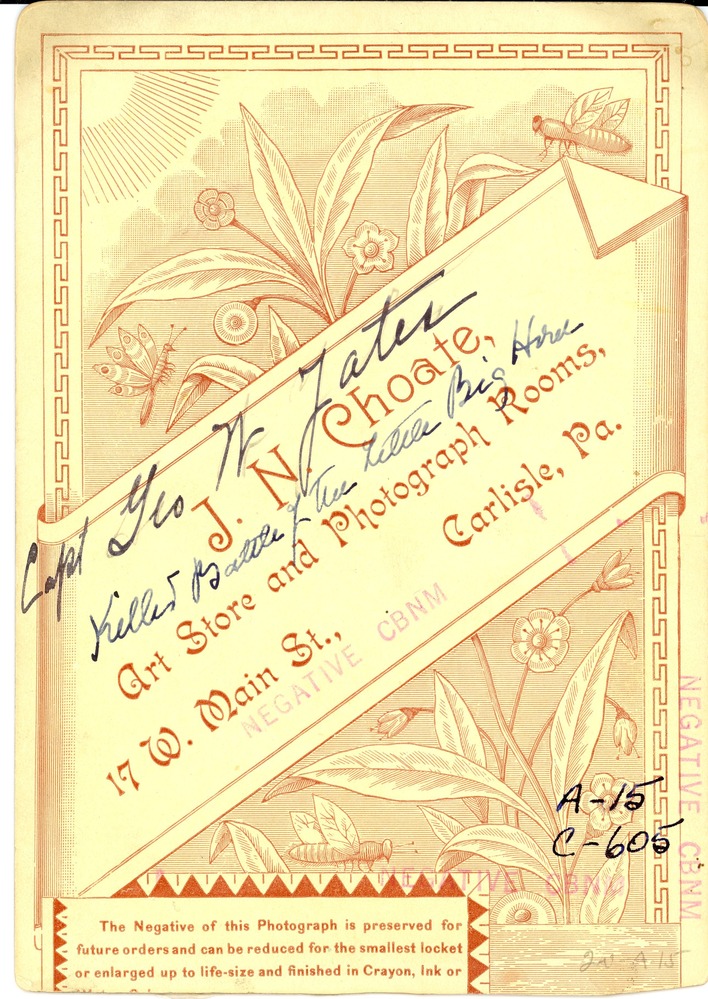 Capt Geo W Yates
J. N. Choate,
Killed Battle of The Little Big Horn
Art Store and Photograph Rooms,
17 W. Main St., Carlisle, Pa.
NEGATIVE CBNM
NEGATIVE CBNM
A-15
C-605
NEGATIVE CBNM
The Negative of this Photograph is preserved for
future orders and can be reduced for the smallest locket
or enlarged up to life-size and finished in Crayon, Ink or
A-15